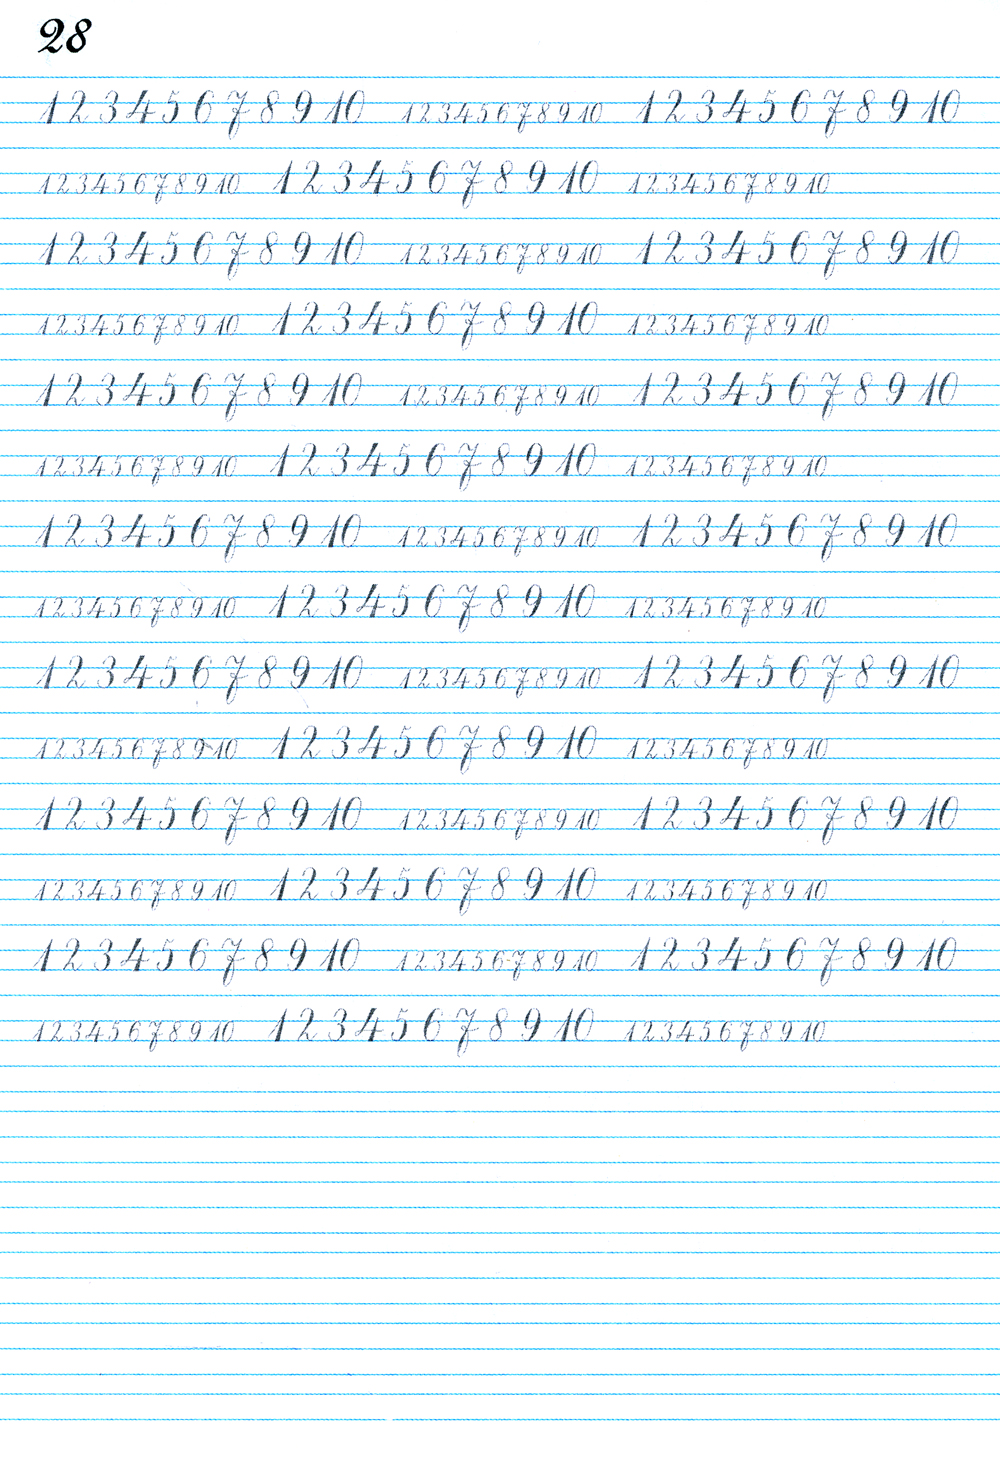 28
1 2 3 4 5 6 7 8 9 10 1 2 3 4 5 6 7 8 9 10 1 2 3 4 5 6 7 8 9 10
1 2 3 4 5 6 7 8 9 10 1 2 3 4 5 6 7 8 9 10 1 2 3 4 5 6 7 8 9 10
1 2 3 4 5 6 7 8 9 10 1 2 3 4 5 6 7 8 9 10 1 2 3 4 5 6 7 8 9 10
1 2 3 4 5 6 7 8 9 10 1 2 3 4 5 6 7 8 9 10 1 2 3 4 5 6 7 8 9 10
1 2 3 4 5 6 7 8 9 10 1 2 3 4 5 6 7 8 9 10 1 2 3 4 5 6 7 8 9 10
1 2 3 4 5 6 7 8 9 10 1 2 3 4 5 6 7 8 9 10 1 2 3 4 5 6 7 8 9 10
1 2 3 4 5 6 7 8 9 10 1 2 3 4 5 6 7 8 9 10 1 2 3 4 5 6 7 8 9 10
1 2 3 4 5 6 7 8 9 10 1 2 3 4 5 6 7 8 9 10 1 2 3 4 5 6 7 8 9 10
1 2 3 4 5 6 7 8 9 10 1 2 3 4 5 6 7 8 9 10 1 2 3 4 5 6 7 8 9 10
1 2 3 4 5 6 7 8 9 10 1 2 3 4 5 6 7 8 9 10 1 2 3 4 5 6 7 8 9 10
1 2 3 4 5 6 7 8 9 10 1 2 3 4 5 6 7 8 9 10 1 2 3 4 5 6 7 8 9 10
1 2 3 4 5 6 7 8 9 10 1 2 3 4 5 6 7 8 9 10 1 2 3 4 5 6 7 8 9 10
1 2 3 4 5 6 7 8 9 10 1 2 3 4 5 6 7 8 9 10 1 2 3 4 5 6 7 8 9 10
1 2 3 4 5 6 7 8 9 10 1 2 3 4 5 6 7 8 9 10 1 2 3 4 5 6 7 8 9 10